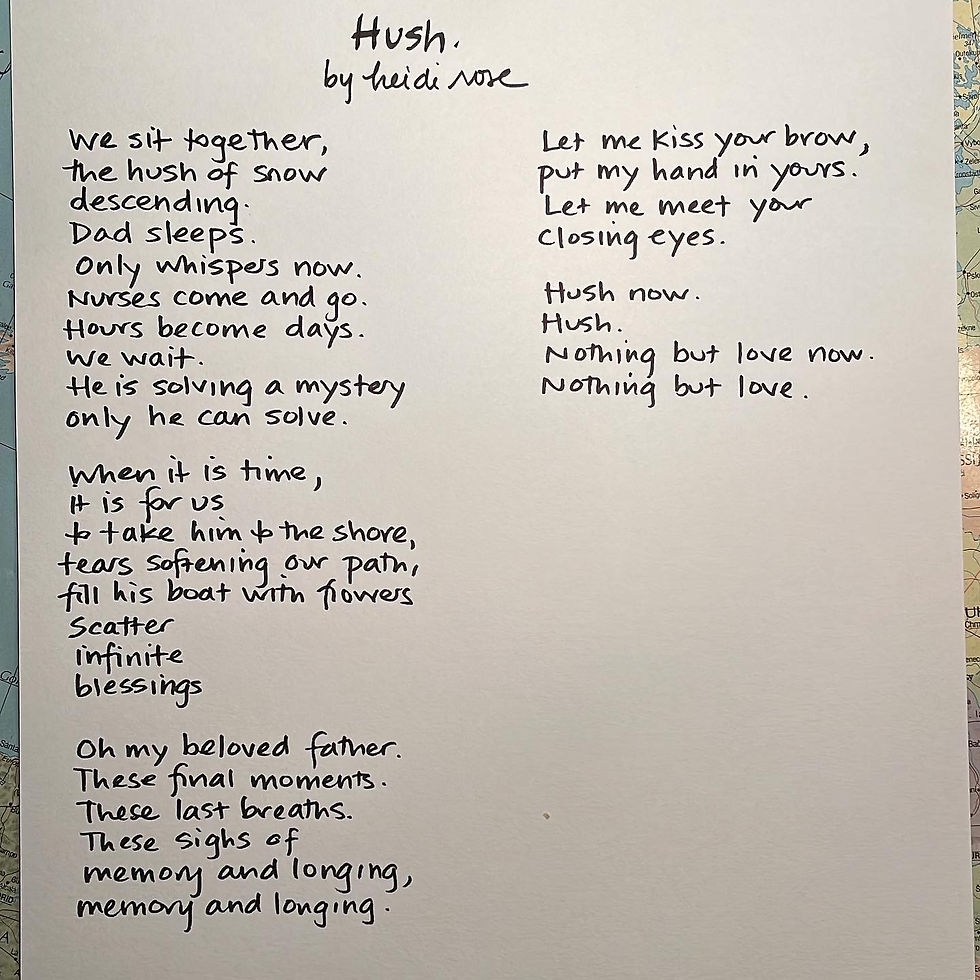 Hush.
by heidi rose
We sit together,
the hush of snow
descending.
Dad sleeps.
Only whispers now.
Nurses come and go.
Hours become days.
We wait.
He is solving a mystery
only he can solve.
When it is time,
it is for us
to take him to the shore,
tears softening our path,
fill his boat with flowers
Scatter
infinite
blessings
Oh my beloved father.
These final moments.
These last breaths.
These sighs of
memory and longing,
memory and longing.
Let me kiss your brow,
put my hand in yours.
Let me meet your
closing eyes.
Hush now.
Hush.
Nothing but love now.
Nothing but love.